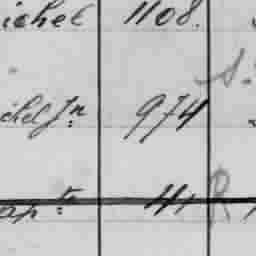 ichel 1108.
S.
ichel Jn 974
apt 41 R